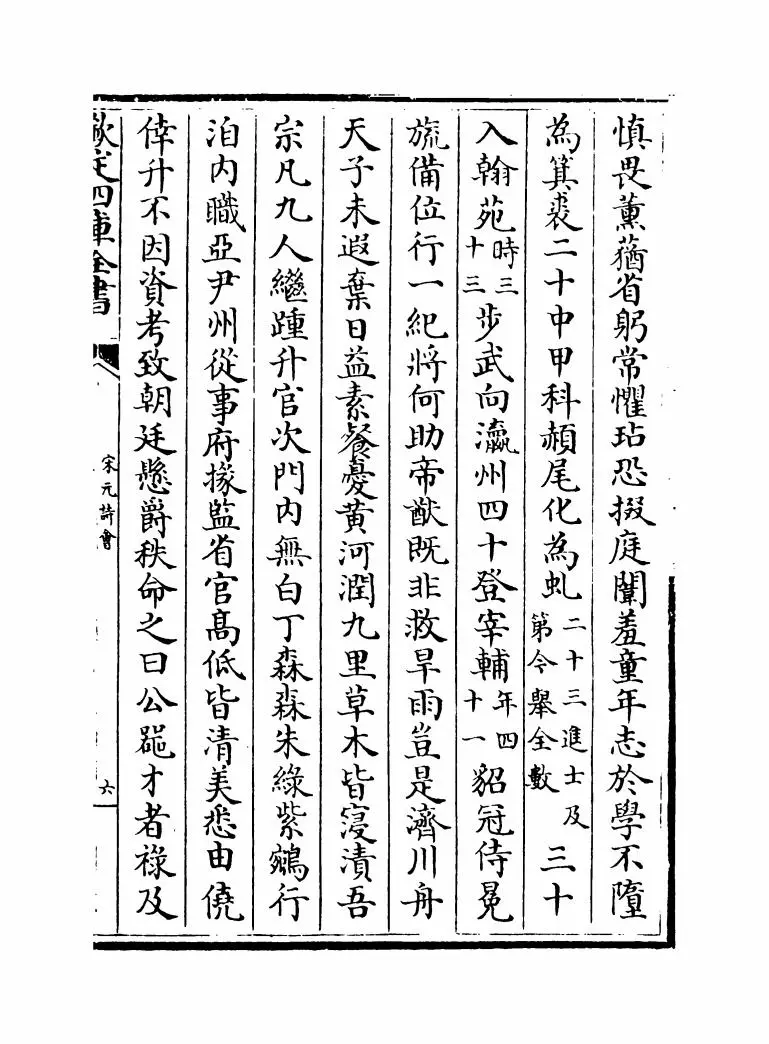 慎畏薰蕕省躬常懼玷恐掇庭闈羞童年志於學不隳
為箕裘二十中甲科赬尾化為虬二十三進士及第今舉全數三十
入翰苑時三十三步武向瀛州四十登宰輔年四十一貂冠侍冕
旒備位行一紀將何助帝猷既非救旱雨豈是濟川舟
天子未遐棄日益素餐憂黃河潤九里草木皆寖漬吾
宗凡九人繼踵升官次門內無白丁森森朱綠紫鵷行
洎內職亞尹州從事府掾監省官髙低皆清美悉由僥
倖升不因資考致朝廷懸爵秩命之曰公噐才者祿及
欽定四庫全書
宋元詩會
六